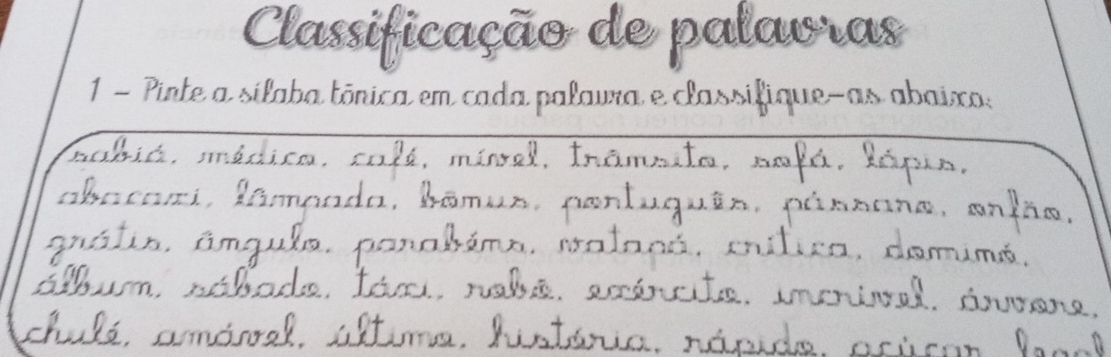 Classificação de palavras
1 - Pinte a sílaba tônica em cada palavra e classifique-as abaixo:
sabiá, médico, café, míssel, trânsito, sofá, lápis,
abacaxi, lâmpada, bônus, português, pássaro, órfão,
grátis, ângulo, parabéns, vatapá, crítica, dominó,
álbum, sábado, táxi, robô, exército, incrível, árvore,
chulé, amável, último, história, rápido, açúcar, legal